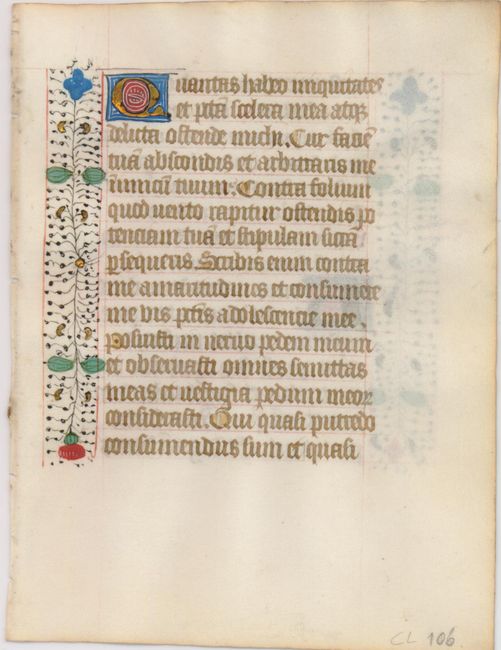 Quantas habeo iniquitates
et pctā scelera mea atqꝫ
delicta ostende michi. Cur faciē
tuā abscondis et arbitraris me
inimicū tuum. Contra folium
quod uento rapitur ostendis po
tenciam tuā et stipulam siccā
ꝑsequeris. Scribis enim contra
me amaritudines et consumere
me vis pctīs adolescencie mee.
posuisti in neruo pedem meum
et obseruasti omnes semittas
meas et uestigia pedum meoꝝ
considerasti. Qui quasi putredo
consumendus sum et quasi
CL 106